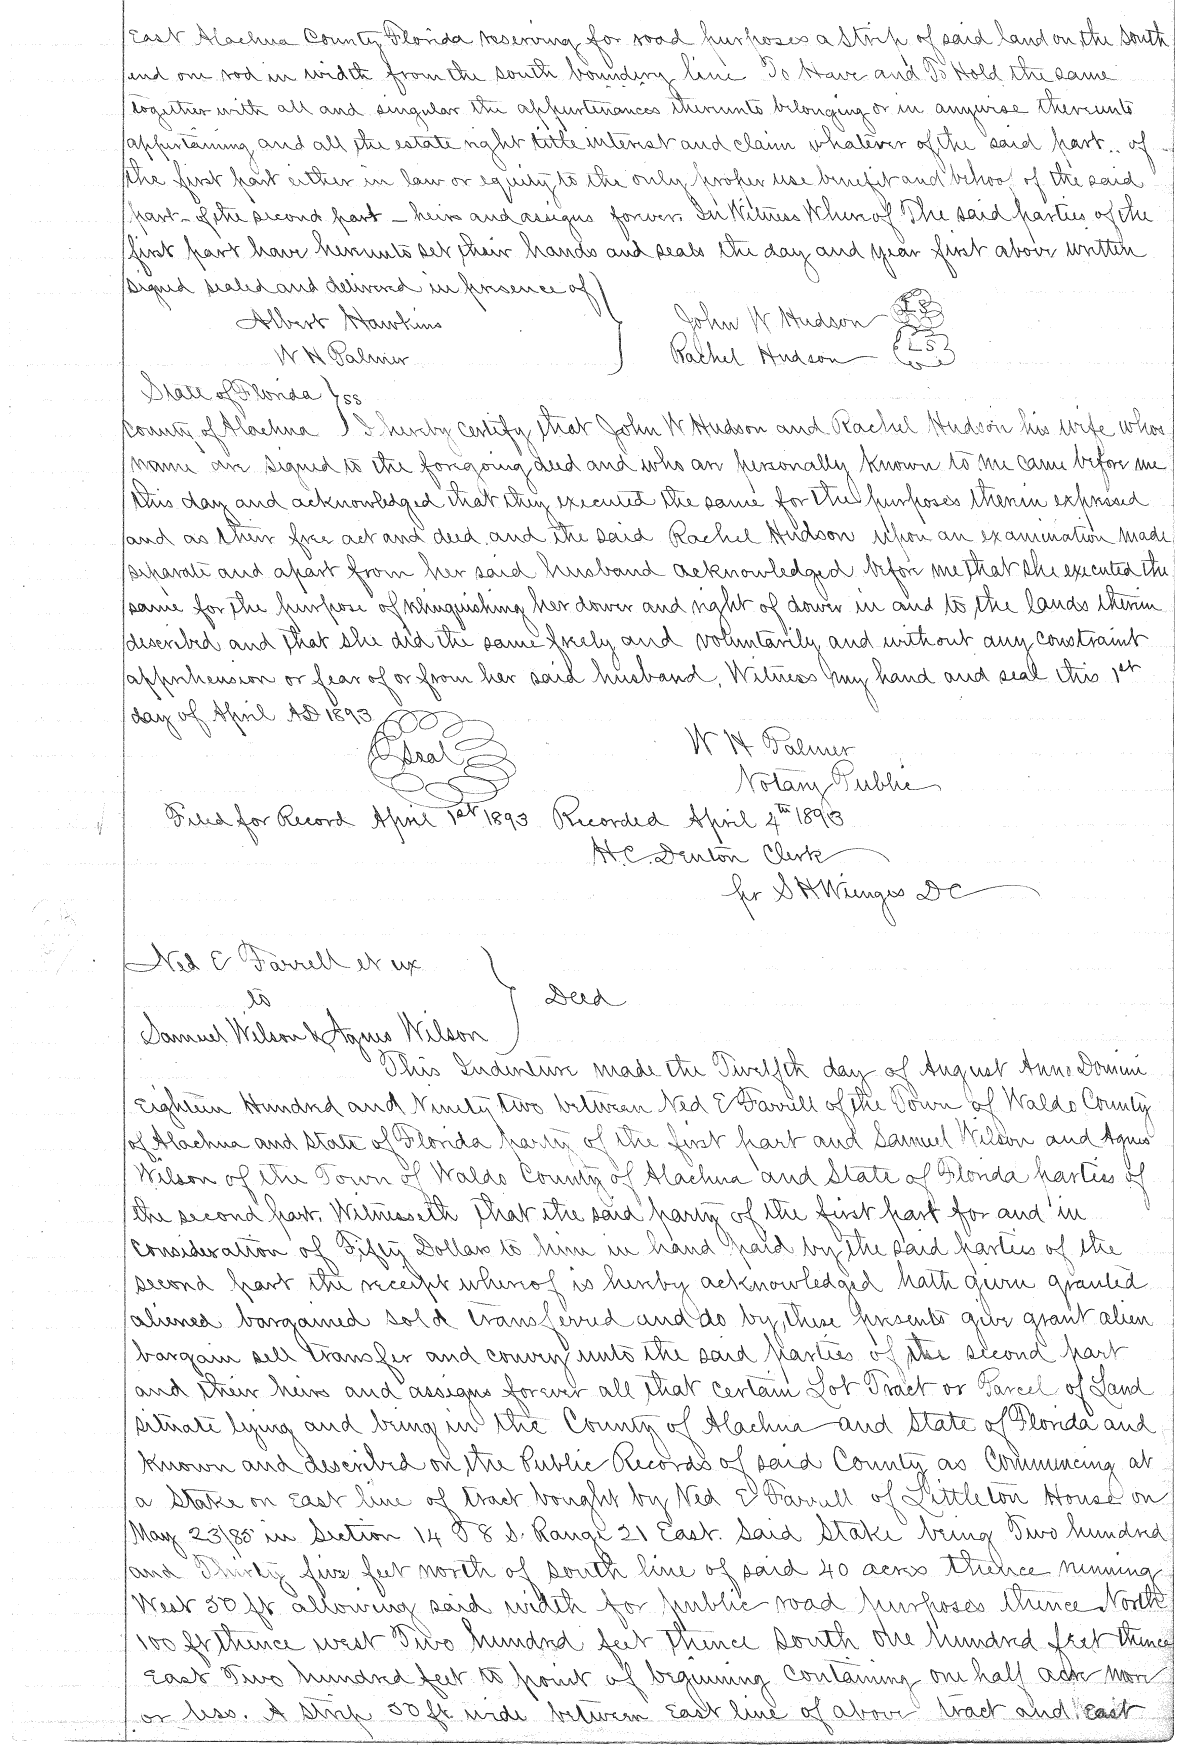 East Alachua County Florida reserving for road purposes a strip of said land on the south
end one rod in width from the south boundery line To Have and To Hold the same
together with all and singular the appurtenances thereunto belonging or in anywise thereunto
appertaining and all the estate right title interest and claim whatever of the said part.. of
the first part either in law or equity to the only proper use benefit and behoof of the said
part_ of the second part _ heirs and assigns forever. In Witness Whereof The said parties of the
first part have hereunto set their hands and seals the day and year first above written
signed sealed and delivered in presence of
Albert Hawkins
W H Palmer
John W Hudson LS
Rachel Hudson LS
State of Florida } ss
County of Alachua } I hereby certify that John W Hudson and Rachel Hudson his wife whos
name are signed to the foregoing deed and who are personally known to me came before me
this day and acknowledged that they executed the same for the purposes therein expressed
and as their free act and deed and the said Rachel Hudson upon an examination made
separate and apart from her said husband acknowledged before me that she executed the
same for the purpose of relinquishing her dower and right of dower in and to the lands therein
described and that she did the same freely and voluntarily and without any constraint
apprehension or fear of or from her said husband, Witness my hand and seal this 1st
day of April AD 1893
Seal
W H Palmer
Notary Public
Filed for Record April 1st 1893 Recorded April 4th 1893
H.C. Denton Clerk
pr S H Wienges DC
Ned E Farrell et ux
to
Deed
Samuel Wilson & Agnes Wilson
This Indenture made the Twelfth day of August Anno Domini
Eighteen Hundred and Ninety two between Ned E Farrell of the Town of Waldo County
of Alachua and State of Florida party of the first part and Samuel Wilson and Agnes
Wilson of the Town of Waldo County of Alachua and State of Florida parties of
the second part. Witnesseth that the said party of the first part for and in
consideration of Fifty Dollars to him in hand paid by the said parties of the
second part the receipt whereof is hereby acknowledged hath given granted
aliened bargained sold transferred and do by these presents give grant alien
bargain sell transfer and convey unto the said parties of the second part
and their heirs and assigns forever all that certain Lot Tract or Parcel of Land
situate lying and being in the County of Alachua and State of Florida and
known and described on the Public Records of said County as Commencing at
a Stake on East line of tract bought by Ned E Farrell of Littleton House on
May 23/85 in Section 14 T 8 S. Range 21 East. Said Stake being Two hundred
and Thirty five feet north of south line of said 40 acres thence running
West 50 ft allowing said width for public road purposes thence North
100 ft thence west Two hundred feet thence south one hundred feet thence
East Two hundred feet to point of beginning containing one half acre more
or less. A strip 50 ft wide between East line of above tract and East